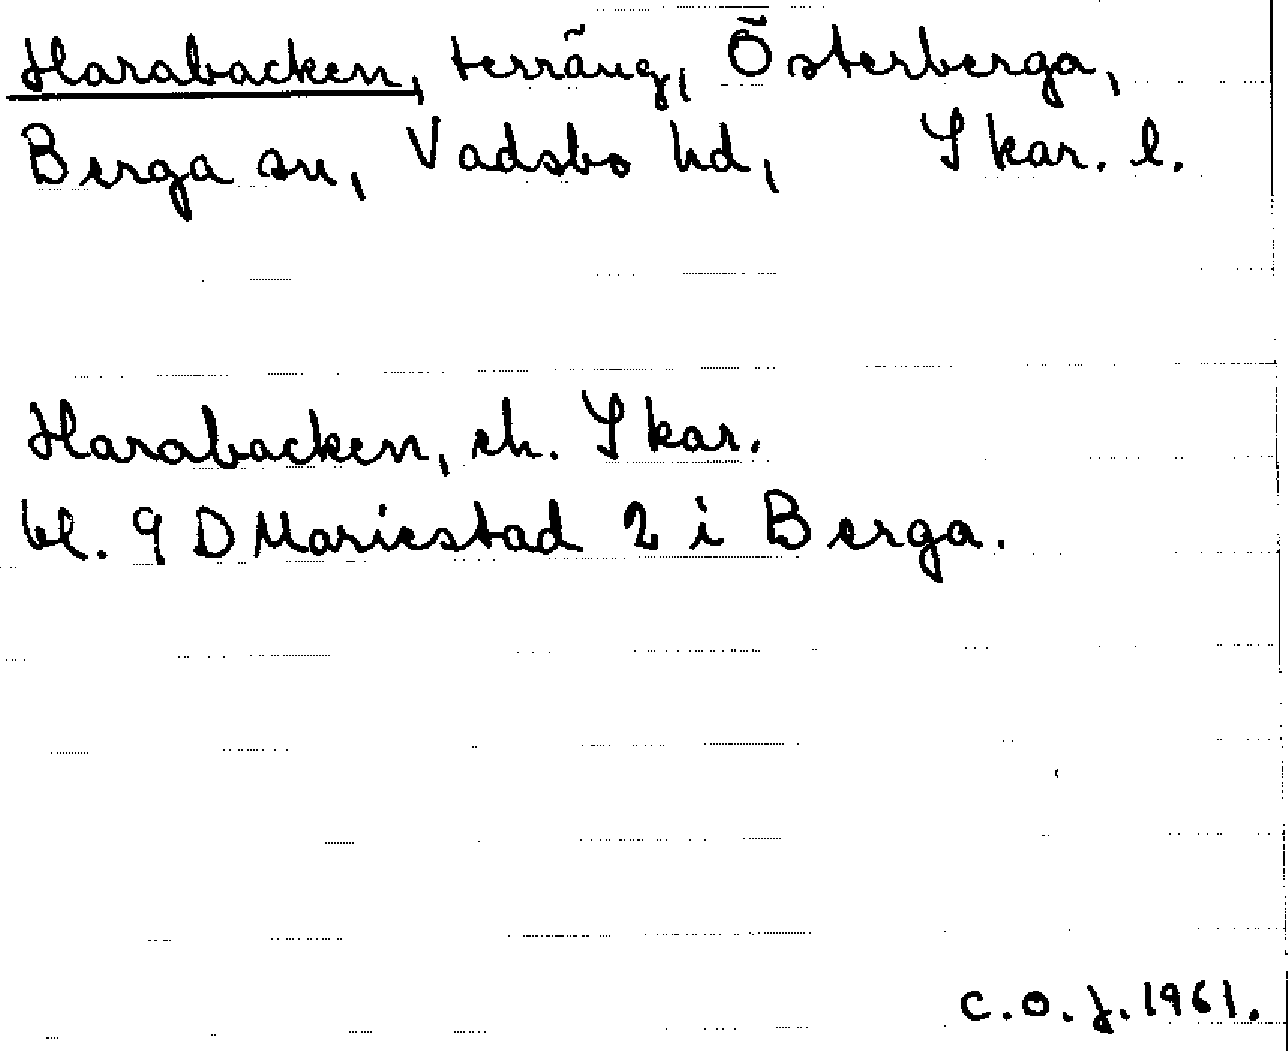 Harabacken, terräng, Österberga,
Berga sn, Vadsbo hd, Skar. l.
Harabacken, eh. Skar.
bl. 9 D Mariestad 2 i Berga.
C.O.J. 1961.